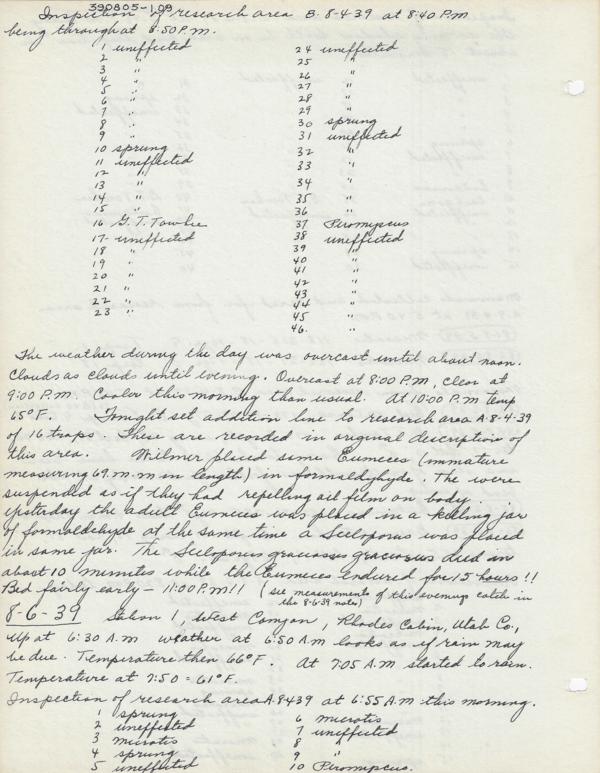 390805-109
Inspection of research area B-8-4-39 at 8:40 P.M.
being through at 8:50 P.M.
1 uneffected
2 "
3 "
4 "
5 "
6 "
7 "
8 "
9 "
10 sprung
11 uneffected
12 "
13 "
14 "
15 "
16 G. T. Towhee
17- uneffected
18 "
19 "
20 "
21 "
22 "
23 "
24 uneffected
25 "
26 "
27 "
28 "
29 "
30 sprung
31 uneffected
32 "
33 "
34 "
35 "
36 "
37 Peromyscus
38 uneffected
39 "
40 "
41 "
42 "
43 "
44 "
45 "
46. "
The weather during the day was overcast until about noon.
Clouds as clouds until evening. Overcast at 8:00 P.M, clear at
9:00 P.M. Cooler this morning than usual. At 10:00 P.M temp
65°F. Tonight set addition line to research area A-8-4-39
of 16 traps. These are recorded in original description of
this area. Wilmer placed some Eumeces (immature
measuring 69. m.m in length) in formaldyhyde. The were
suspended as if they had repelling oil film on body.
Yestaday the adult Eumeces was placed in a killing jar
of formaldehyde at the same time a Sceloporus was placed
in same jar. The Sceloporus graciosus graciosus died in
about 10 minutes while the Eumeces endured for 15 hours!!
Bed fairly early - 11:00 P.M!! (see measurements of this evenings catch in
the 8-6-39 notes)
8-6-39 Station 1, West Canyon, Rhodes Cabin, Utah Co.,
Up at 6:30 A.M weather at 6:50 A.M looks as if rain may
be due. Temperature then 66°F. At 7:05 A.M started to rain.
Temperature at 7:50 = 61°F.
Inspection of research area A-8439 at 6:55 A.M this morning.
1 sprung
2 uneffected
3 microtis
4 sprung
5 uneffected
6 microtis
7 uneffected
8 "
9 "
10 Peromyscus.